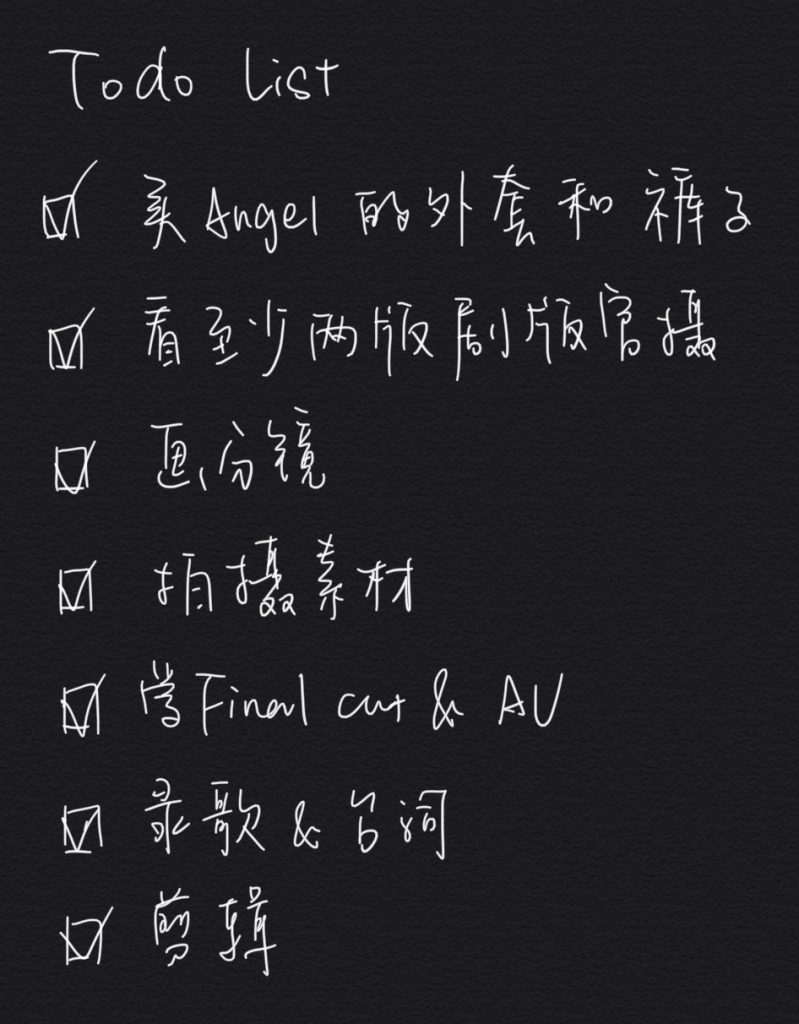 Todo List
☑ 买Angel 的外套和裤子
☑ 看至少两版剧版官摄
☑ 画分镜
☑ 拍摄素材
☑ 学Final cut & AU
☑ 录歌 & 台词
☑ 剪辑